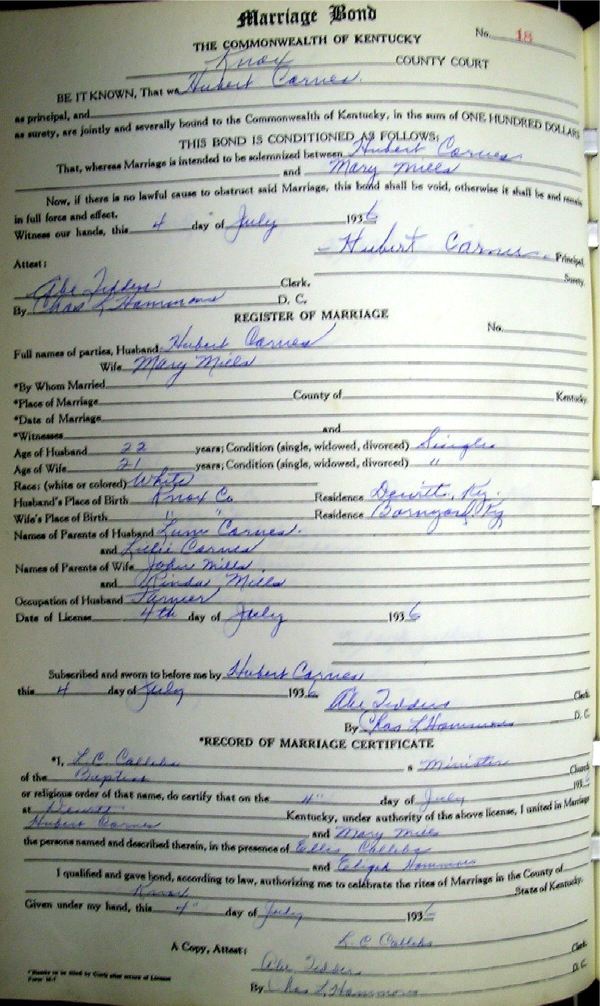 Marriage Bond
No. 18
THE COMMONWEALTH OF KENTUCKY
Knox COUNTY COURT
BE IT KNOWN, That we Hubert Carnes
as principal, and
as surety, are jointly and severally bound to the Commonwealth of Kentucky, in the sum of ONE HUNDRED DOLLARS
THIS BOND IS CONDITIONED AS FOLLOWS:
That, whereas Marriage is intended to be solemnized between Hubert Carnes
and Mary Mills
Now, if there is no lawful cause to obstruct said Marriage, this bond shall be void, otherwise it shall be and remain
in full force and effect.
Witness our hands, this 4 day of July 1936
Hubert Carnes Principal.
Attest: Surety.
Abe Tedders Clerk.
By Chas L Hammons D. C.
REGISTER OF MARRIAGE
No.
Full names of parties, Husband Hubert Carnes
Wife Mary Mills
*By Whom Married
*Place of Marriage County of Kentucky.
*Date of Marriage
*Witnesses and
Age of Husband 22 years; Condition (single, widowed, divorced) Single
Age of Wife 21 years; Condition (single, widowed, divorced) "
Race: (white or colored) White
Husband's Place of Birth Knox Co Residence Dewitt, Ky.
Wife's Place of Birth " " Residence Barnyard, Ky
Names of Parents of Husband Lum Carnes.
and Carnes
Names of Parents of Wife John Mills
and Rinda Mills
Occupation of Husband Farmer
Date of License 4th day of July 1936
Subscribed and sworn to before me by Hubert Carnes
this 4 day of July 1936
Abe Tedders Clerk.
By Chas L Hammons D. C.
*RECORD OF MARRIAGE CERTIFICATE
*I, L.C. Callebs a Minister
of the Baptist Church
or religious order of that name, do certify that on the 4" day of July 1936
at Dewitt Kentucky, under authority of the above license, I united in Marriage
Hubert Carnes and Mary Mills
the persons named and described therein, in the presence of Callebs
and Elijah Hammons
I qualified and gave bond, according to law, authorizing me to celebrate the rites of Marriage in the County of
Knox State of Kentucky.
Given under my hand, this 4" day of July 1936
L.C. Callebs
A Copy, Attest: Abe Tedders Clerk.
By Chas L Hammons D. C.